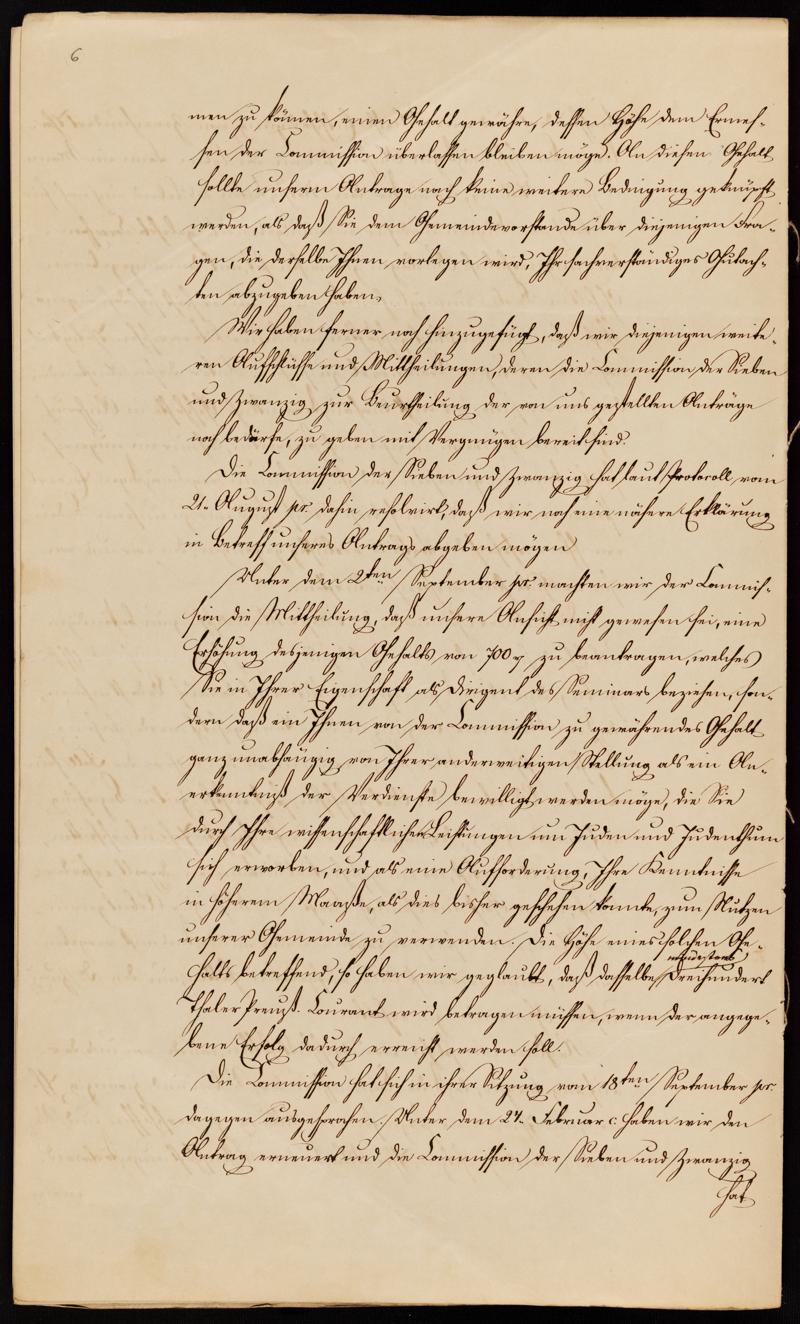 6
men zu können, einen Gehalt gewähre, dessen Höhe dem Ermes-
sen der Commission überlassen bleiben möge. An diesen Gehalt
sollte unserm Antrage nach keine weitere Bedingung geknüpft
werden, als daß Sie dem Gemeindevorstande über diejenigen Fra-
gen, die derselbe Ihnen vorlegen wird, Ihr sachverständiges Gutach-
ten abzugeben haben.
Wir haben ferner noch hinzugefügt, daß wir diejenigen weite-
ren Aufschlüsse und Mittheilungen, deren die Commission der Sieben
und Zwanzig zur Beurtheilung der von uns gestellten Anträge
noch bedürfe, zu geben mit Vergnügen bereit sind.
Die Commission der Sieben und Zwanzig hat laut Protocoll vom
21. August pr. dahin resolvirt, daß wir noch eine nähere Erklärung
in Betreff unseres Antrags abgeben mögen
Unter dem 2ten September pr. machten wir der Commis-
sion die Mittheilung, daß unsere Ansicht nicht gewesen sei, eine
Erhöhung desjenigen Gehalts von 700 zu beantragen, welches
Sie in Ihrer Eigenschaft als Dirigent des Seminars beziehen, son-
dern daß ein Ihnen von der Commission zu gewährendes Gehalt
ganz unabhängig von Ihrer anderweitigen Stellung als ein An-
erkenntniß der Verdienste bewilligt werden möge, die Sie
durch Ihre wissenschaftlichen Leistungen um Juden und Judenthum
sich erworben, und als eine Aufforderung, Ihre Kenntnisse
in höherem Maaße, als dies bisher geschehen konnte, zum Nutzen
unserer Gemeinde zu verwenden. Die Höhe eines solchen Ge-
mindestens
halts betreffend, so haben wir geglaubt, daß dasselbe Dreihundert
Thaler Preuß. Courant wird betragen müssen, wenn der angege-
bene Erfolg dadurch erreicht werden soll.
Die Commission hat sich in ihrer Sitzung vom 18ten September pr.
dagegen ausgesprochen. Unter dem 27. Februar c. haben wir den
Antrag erneuert und die Commission der Sieben und Zwanzig
hat